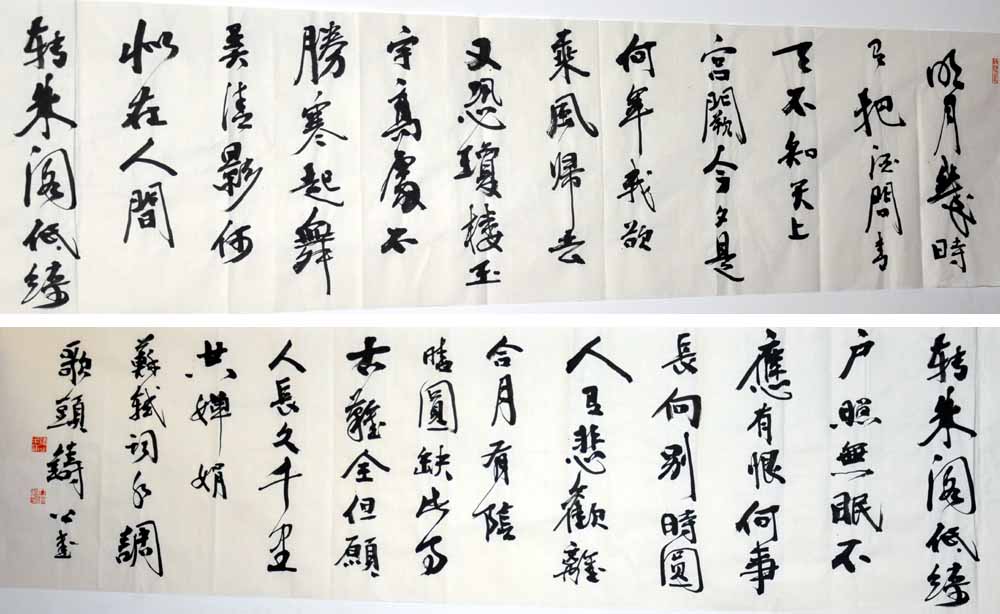 明月幾時
有把酒問青
天不知天上
宫闕今夕是
何年我欲
乘風歸去
又恐瓊樓玉
宇高處不
勝寒起舞
弄清影何
似在人間
转朱阁低綺
转朱阁低綺
户照無眠不
應有恨何事
長向别時圓
人有悲歡離
合月有陰
晴圓缺此事
古難全但願
人長久千里
共嬋娟
蘇軾词水調
歌頭鑄公書